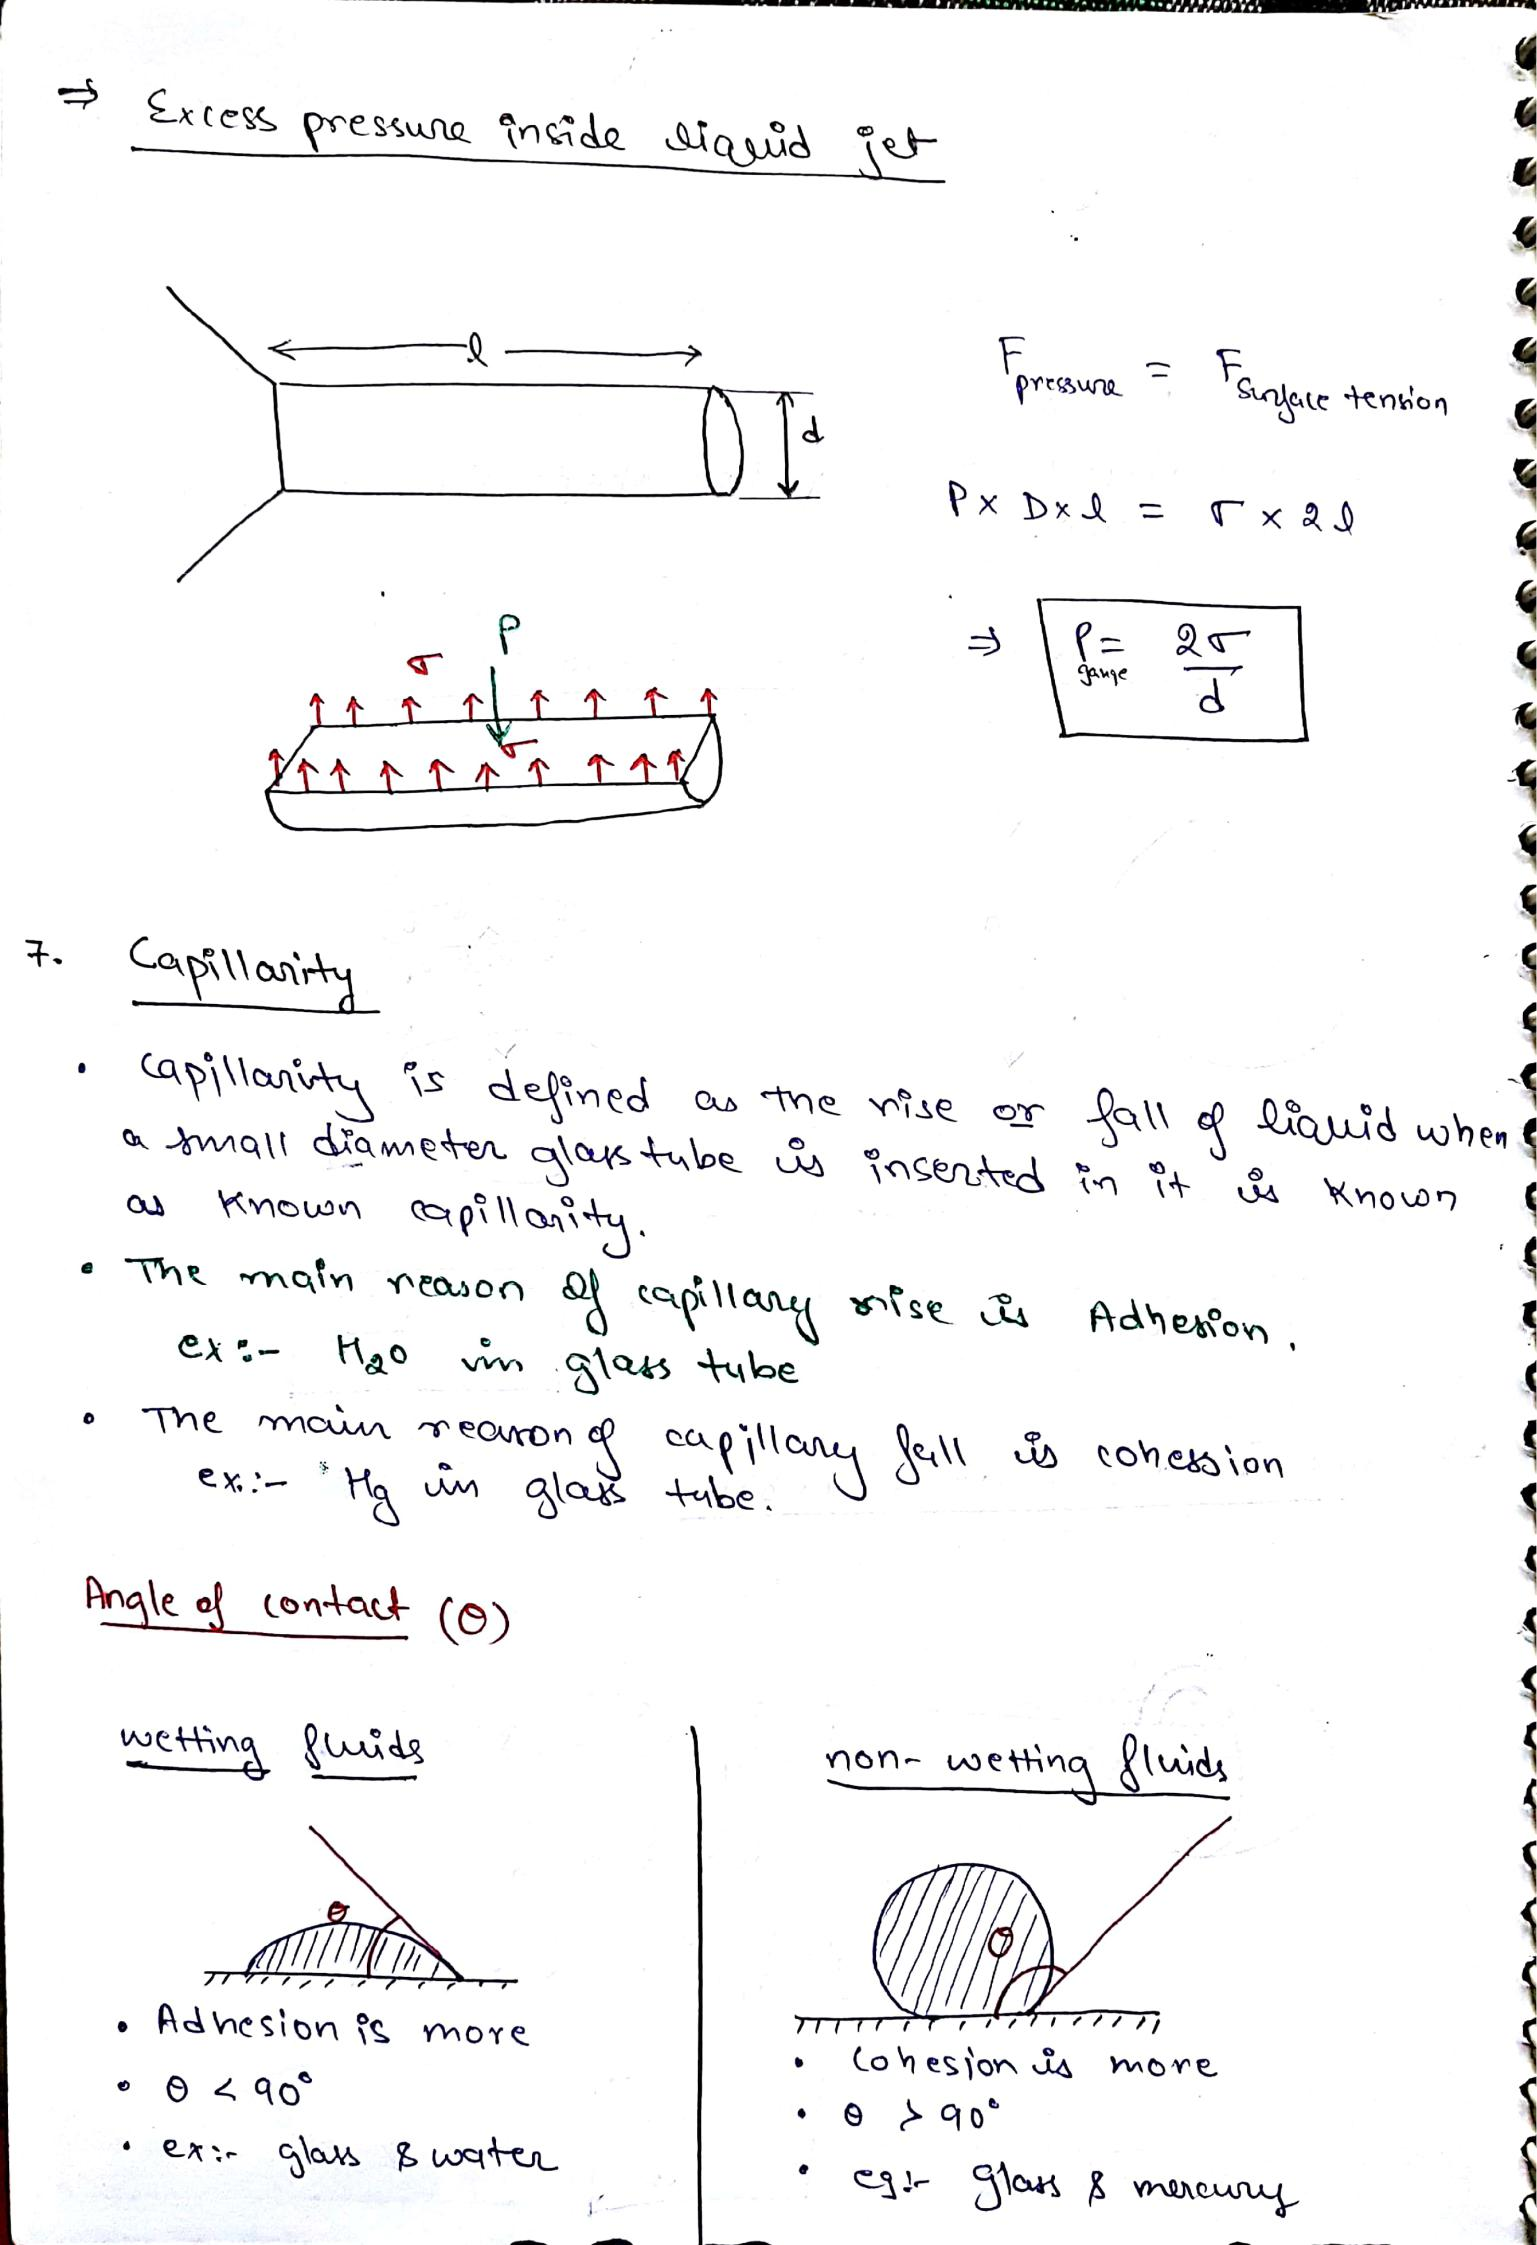 ⇒ Excess pressure inside liquid jet
l
d
F pressure = F surface tension
P × D × l = σ × 2l
⇒ P gauge = 2σ / d
P
σ
σ
7. Capillarity
• Capillarity is defined as the rise or fall of liquid when
a small diameter glass tube is inserted in it is known
as known capillarity.
• The main reason of capillary rise is Adhesion.
ex:- H2O in glass tube
• The main reason of capillary fall is cohession
ex:- Hg in glass tube.
Angle of contact (θ)
wetting fluids
θ
• Adhesion is more
• θ < 90°
• ex:- glass & water
non-wetting fluids
θ
• Cohesion is more
• θ > 90°
• eg:- Glass & mercury